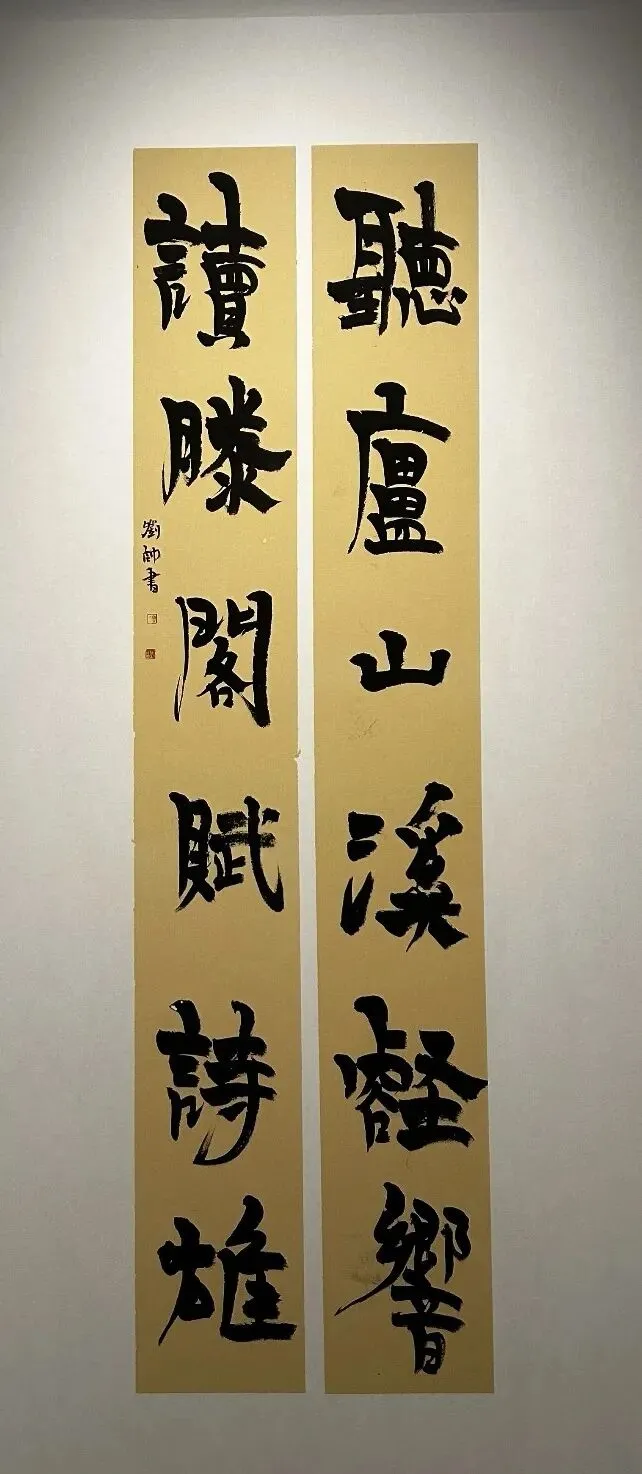 聽廬山溪壑響
讀滕閣賦詩雄
劉帥書